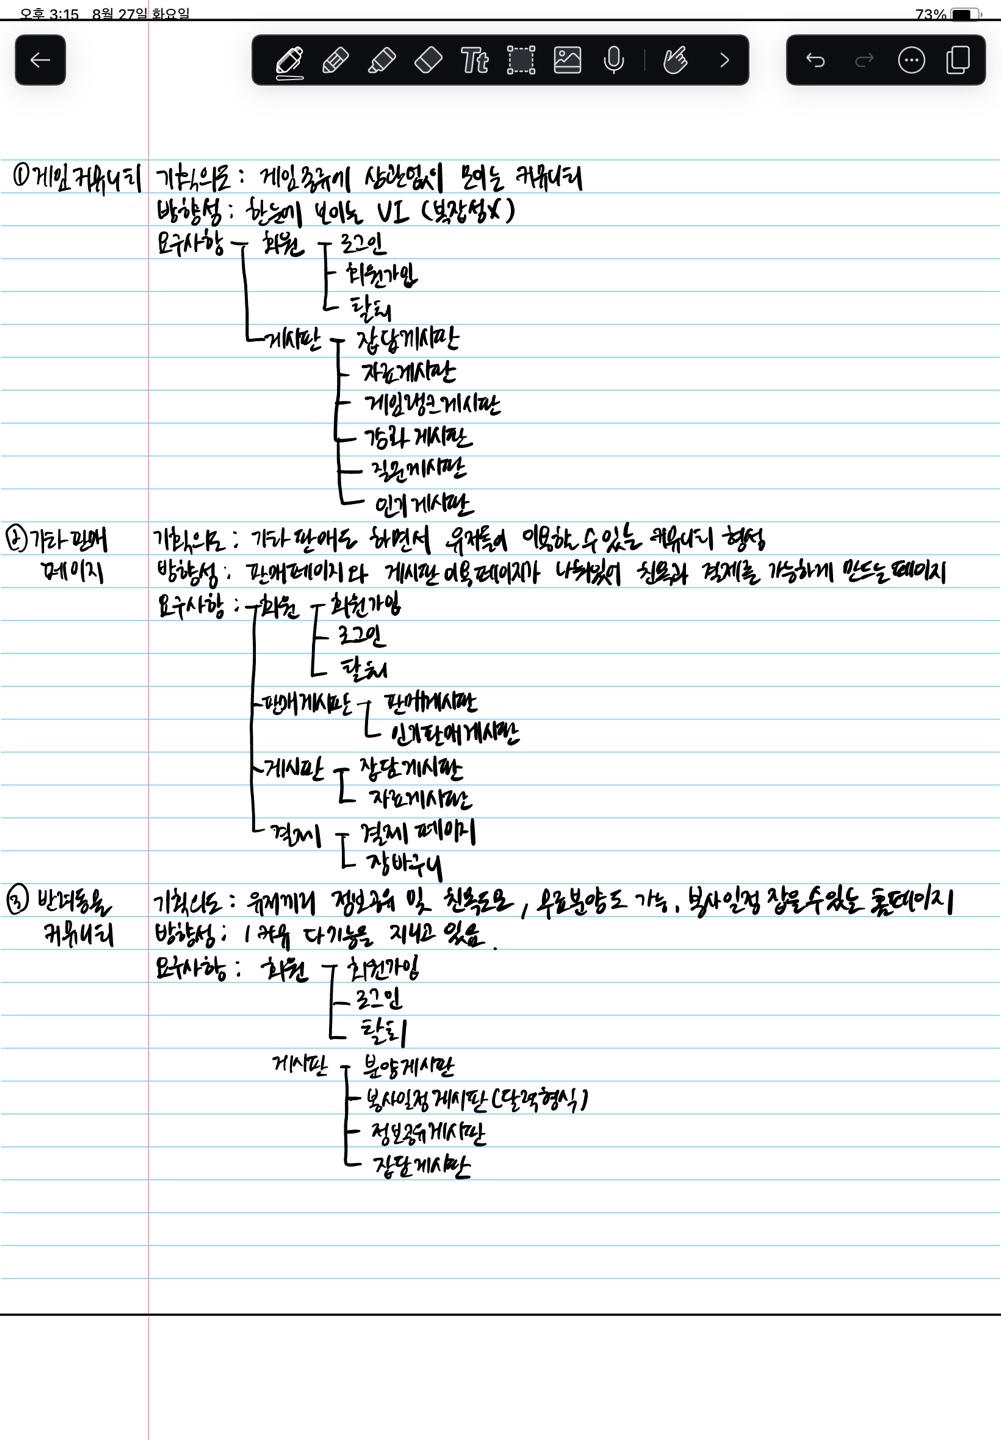 오후 3:15 8월 27일 화요일 73%
Tt
① 게임 커뮤니티 기획의도 : 게임종류에 상관없이 모이는 커뮤니티
방향성 : 한눈에 보이는 UI (복잡성X)
요구사항 회원 로그인
회원가입
탈퇴
게시판 잡담게시판
자료게시판
게임랭크게시판
공략 게시판
질문게시판
인기 게시판
② 기타 판매 기획의도 : 기타 판매도 하면서 유저들이 이용할 수 있는 커뮤니티 형성
페이지 방향성 : 판매페이지와 게시판 이용페이지가 나눠있어 친목과 결제를 가능하게 만드는 페이지
요구사항 : 회원 회원가입
로그인
탈퇴
판매게시판 판매게시판
인기판매게시판
게시판 잡담게시판
자료게시판
결제 결제 페이지
장바구니
③ 반려동물 기획의도 : 유저끼리 정보공유 및 친목도모, 무료분양도 가능, 봉사일정 잡을수있는 홈페이지
커뮤니티 방향성 : 1 커뮤 다기능을 지니고 있음.
요구사항 : 회원 회원가입
로그인
탈퇴
게시판 분양게시판
봉사일정 게시판 (달력형식)
정보공유게시판
잡담게시판